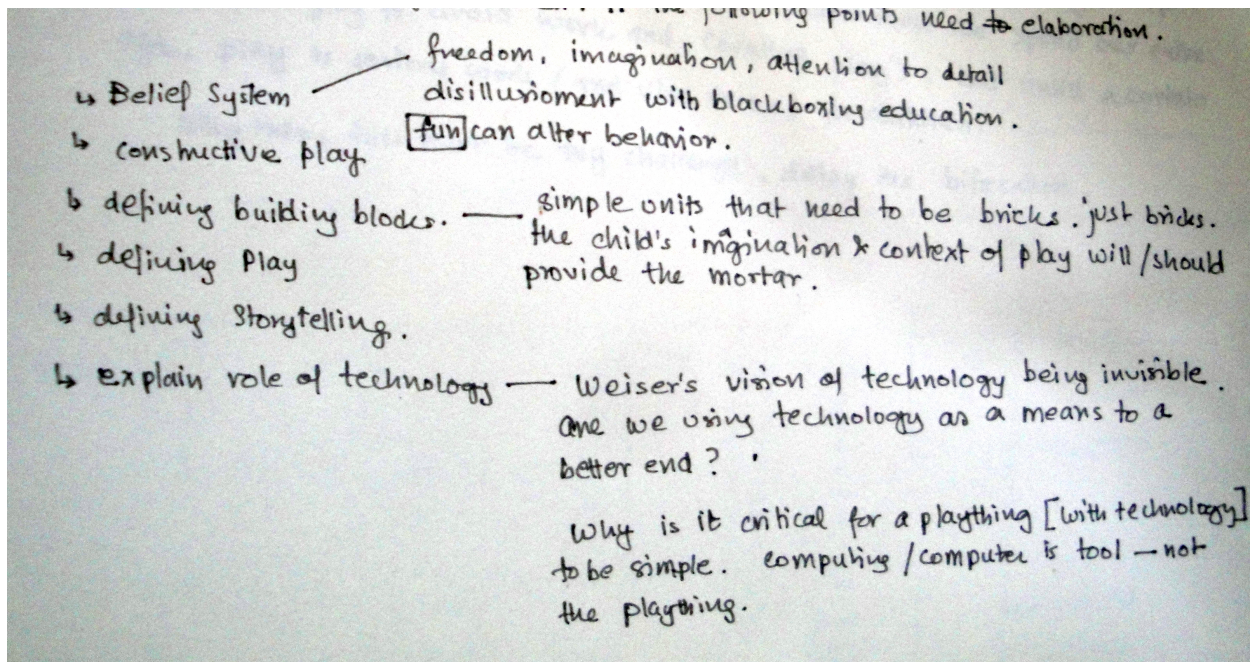 the following points need to elaboration.
freedom, imagination, attention to detail
↳ Belief System — disillusioment with blackboxing education.
fun can alter behavior.
↳ constructive play
↳ defining building blocks. — simple units that need to be bricks. just bricks.
the child's imagination & context of play will/should
↳ defining Play
provide the mortar.
↳ defining Storytelling.
↳ explain role of technology — Weiser's vision of technology being invisible.
are we using technology as a means to a
better end?
Why is it critical for a plaything [with technology]
to be simple. computing/computer is tool — not
the plaything.